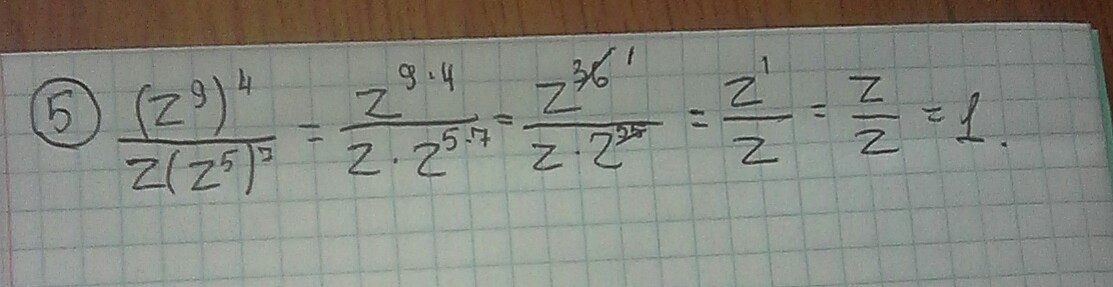 ⑤ (z⁹)⁴ / z(z⁵)⁷ = z⁹·⁴ / z · z⁵·⁷ = z³⁶ ¹ / z · z³⁵ = z¹ / z = z / z = 1.